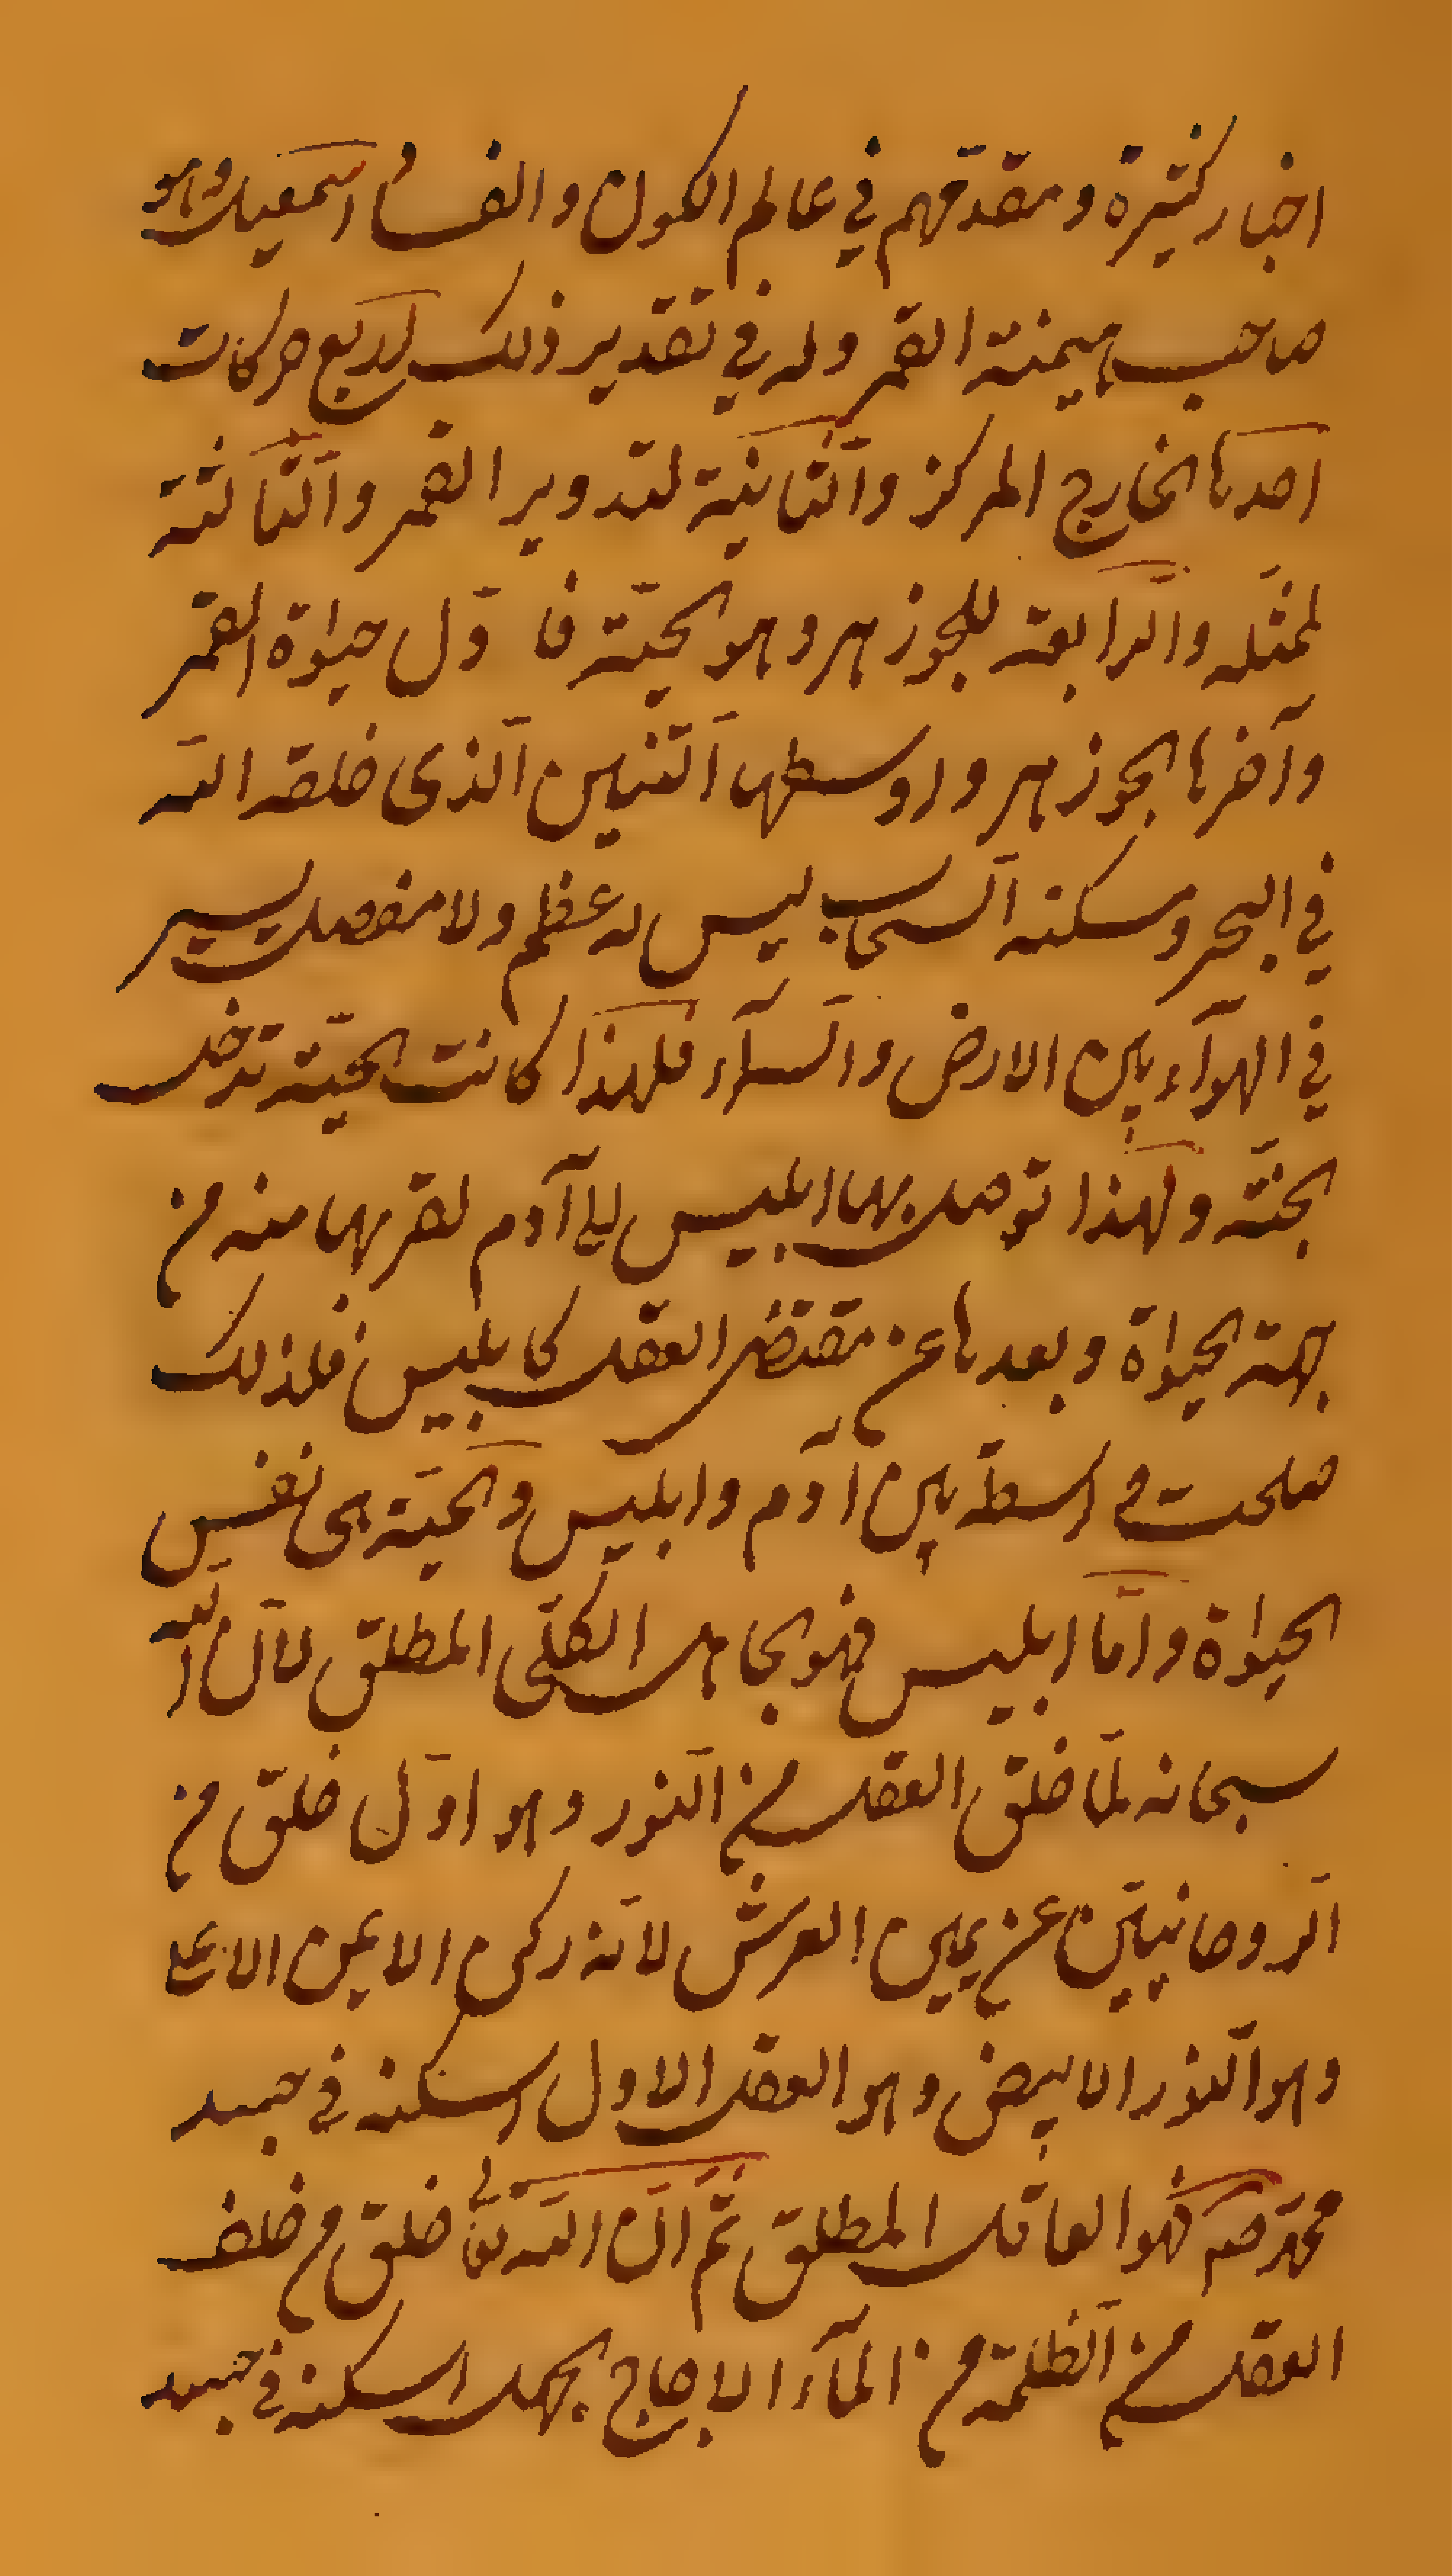 اخبار كثيرة و مقدّمهم في عالم الكون و الفساد اسمعيل و هو
صاحب هيمنة القمر و له في تقدير ذلك اربع حركات
احدها الخارج المركز و الثّانية لتدوير القمر و الثّالثة
لممثّله و الرّابعة للجوزهر و هو الحيّة فاوّل حيوة القمر
و آخرها الجوزهر و اوسطها التّنين الّذى خلقه اللّه
في البحر و مسكنه السّحاب ليس له عظم و لا مفصل يسير
في الهوآء بين الارض و السّمآء فلهذا كانت الحيّة تدخل
الجنّة و لهذا توصل بها ابليس الى آدم لقربها منه من
جهة الحيوة و بعدها عن مقتضى العقل كابليس فلذلك
صلحت واسطة بين آدم و ابليس و الحيّة هى نفس
الحيوة و امّا ابليس فهو الجاهل الكلّى المطلق لانّ اللّه
سبحانه لمّا خلق العقل من النّور و هو اوّل خلق من
الرّوحانيّين عن يمين العرش لانّه ركن الايمن الاعلى
و هو النّور الابيض و هو العقل الاول اسكنه في جسد
محمّد صه فهو العاقل المطلق ثمّ انّ اللّه تعالى خلق من خلف
العقل من الظّلمة من المآء الاجاج الجهل اسكنه في جسد